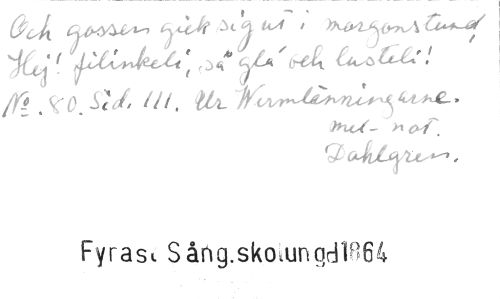 Och gossen gick sig ut i morgonstund,
Hej! filinkeli, så glå och lusteli!
No. 80. Sid. 111. Ur Wermlänningarne.
mel- not.
Dahlgren.
Fyrast Sång.skolungd1864